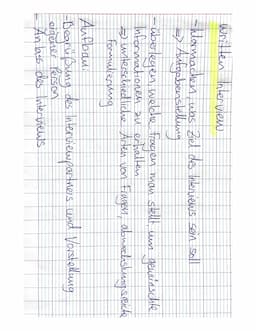 written Interview
- klarmachen was Ziel des Interviews sein soll
⇒ Aufgabenstellung
- überlegen welche Fragen man stellt um gewünschte
Informationen zu erhalten
⇒ unterschiedliche Arten von Fragen, abwechslungsreiche
Formulierung
Aufbau:
- Begrüßung des Interviewpartners und Vorstellung
eigener Person
- Anlass des Interviews